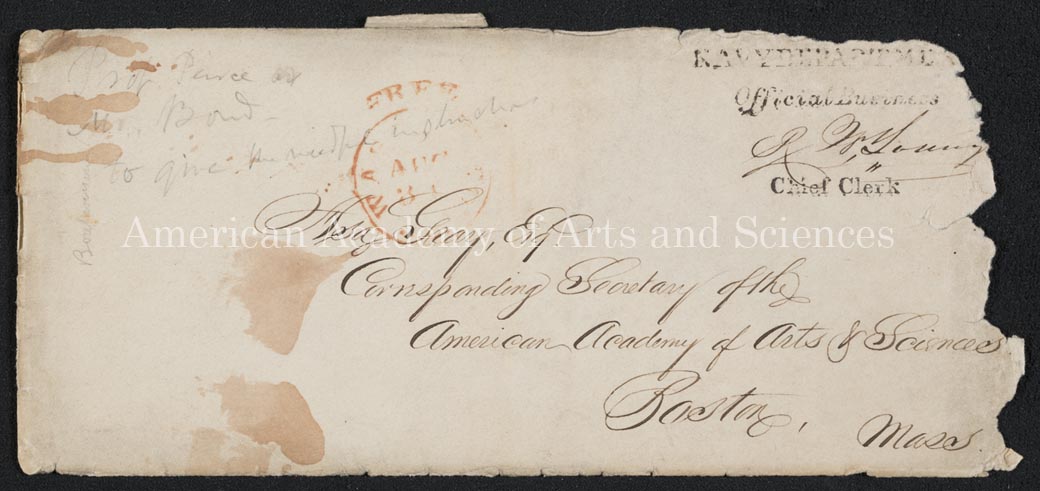 NAVY DEPARTME
Official Business
W. Young
Chief Clerk
FREE
AUG
Prof. Peirce or
Mr. Bond
to give the needful instructions
Asa Gray, Esq
Corresponding Secretary of the
American Academy of Arts & Sciences
Boston,
Mass
American Academy of Arts and Sciences